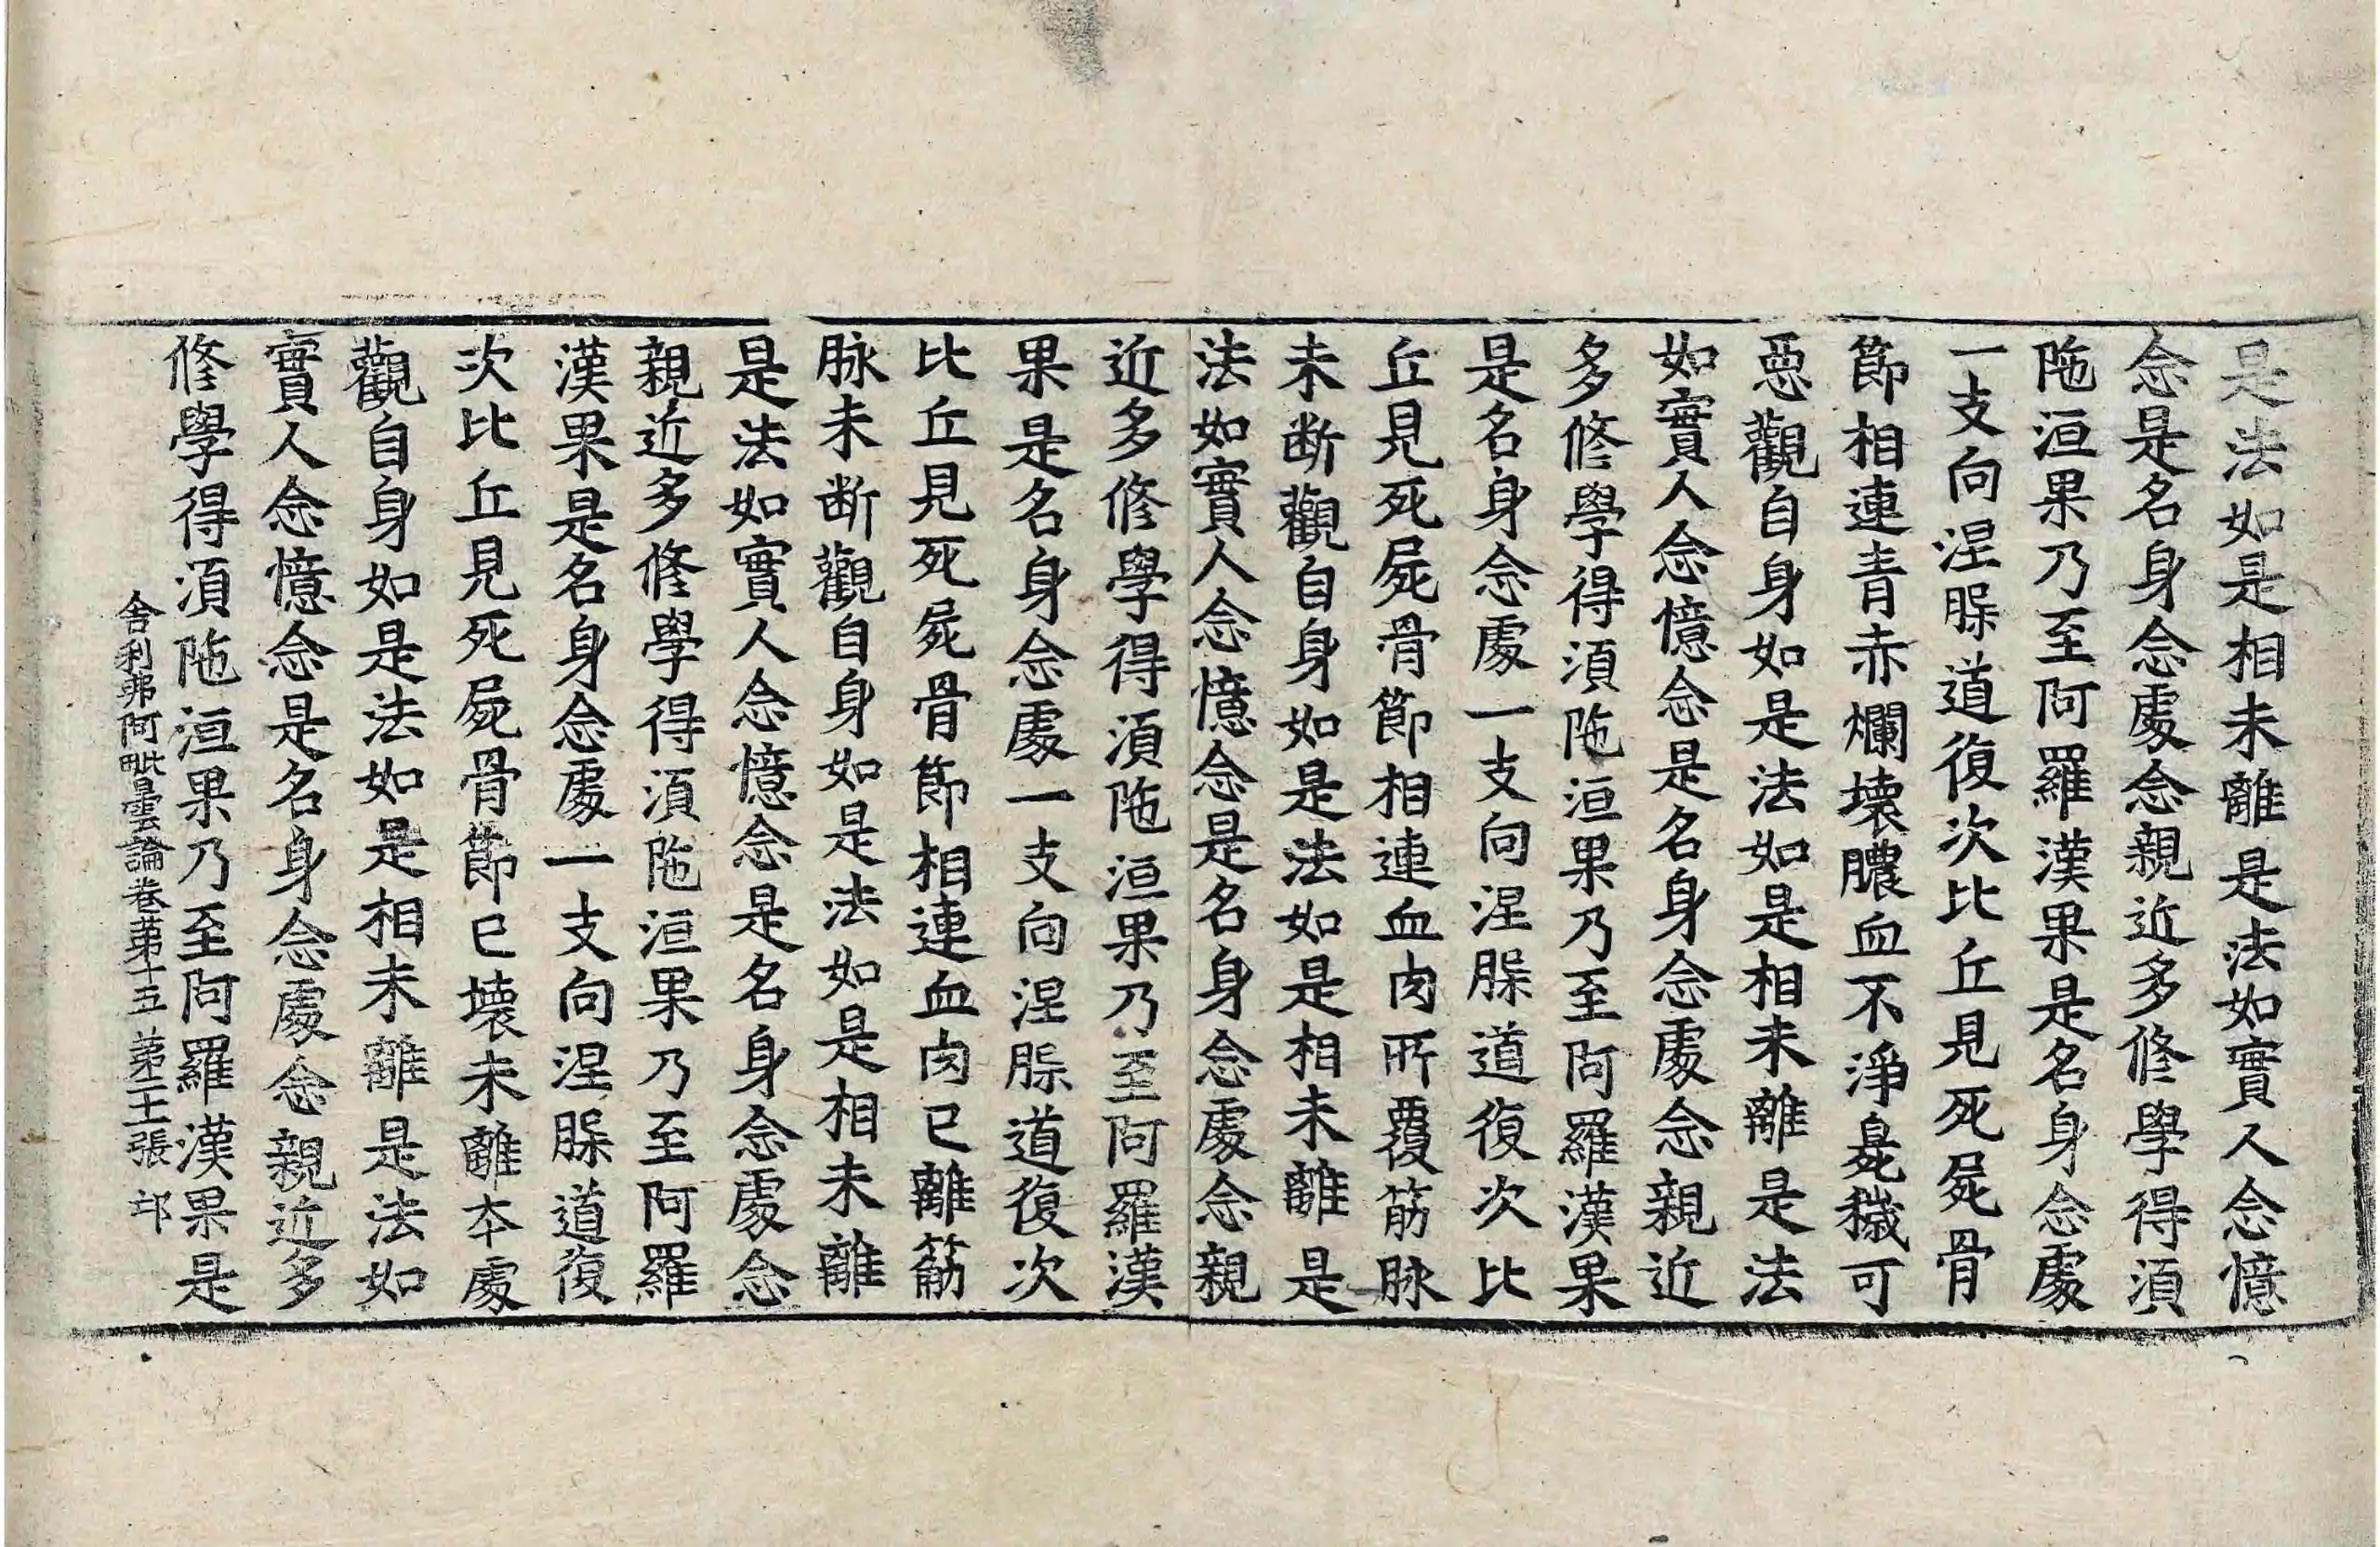 是法如是相未離是法如實人念憶
念是名身念處念親近多修學得湏
陁洹果乃至阿羅漢果是名身念處
一支向涅脲道復次比丘見死屍骨
節相連青赤爛壞膿血不淨臰穢可
惡觀自身如是法如是相未離是法
如實人念憶念是名身念處念親近
多修學得湏陁洹果乃至阿羅漢果
是名身念處一支向涅脲道復次比
丘見死屍骨節相連血肉所覆筋脉
未断觀自身如是法如是相未離是
法如實人念憶念是名身念處念親
近多修學得湏陁洹果乃至阿羅漢
果是名身念處一支向涅脲道復次
比丘見死屍骨節相連血肉已離筋
脉未断觀自身如是法如是相未離
是法如實人念憶念是名身念處念
親近多修學得湏陁洹果乃至阿羅
漢果是名身念處一支向涅脲道復
次比丘見死屍骨節已壞未離夲處
觀自身如是法如是相未離是法如
實人念憶念是名身念處念親近多
修學得湏陁洹果乃至阿羅漢果是
舍利弗阿毗曇論卷苐十五 苐二王張 邙